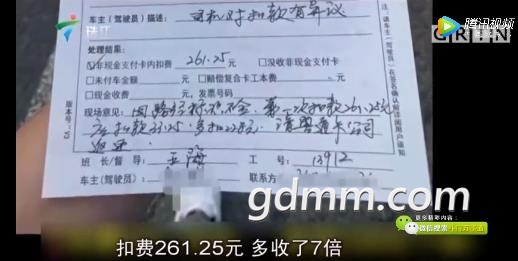 车主(驾驶员)描述: 司机对扣款有异议
腾讯视频
处理结果:
☑非现金支付卡内扣费 261.25 元 □没收非现金支付卡
□未付车金额 元 □赔偿复合卡工本费 元
□现金收费 元, 发票号码
现场意见: 因路径标识不全. 第一次扣款261.25元
应扣款33.25. 多扣228元. 请粤通卡公司
退还.
班 长/督 导: 王海 工 号: 13912
车主(驾驶员): 联系方
gdmm.com
更多精彩内容:
微信搜索
扣费261.25元 多收了7倍